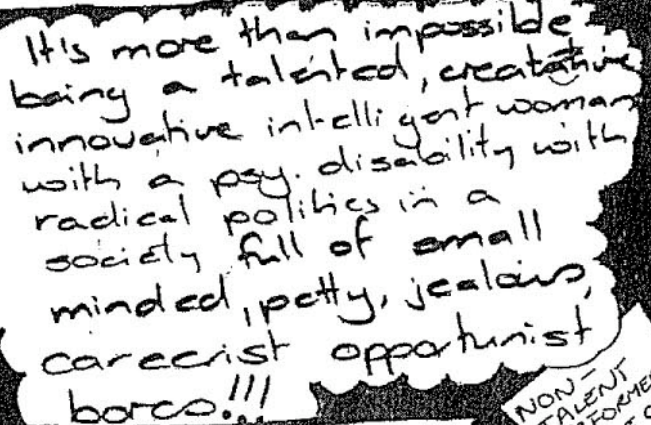 It's more than impossible
being a talented, creatative
innovative intelligent woman
with a psy. disability with
radical politics in a
society full of small
minded, petty, jealous,
careerist opportunist
bores!!!
NON-
TALENT